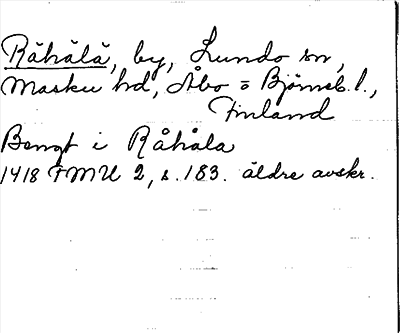 Råhålå, by, Lundo sn,
Masku hd, Åbo o Björneb. l.,
Finland
Bengt i Råhåla
1418 FMU 2, s. 183. äldre avskr.